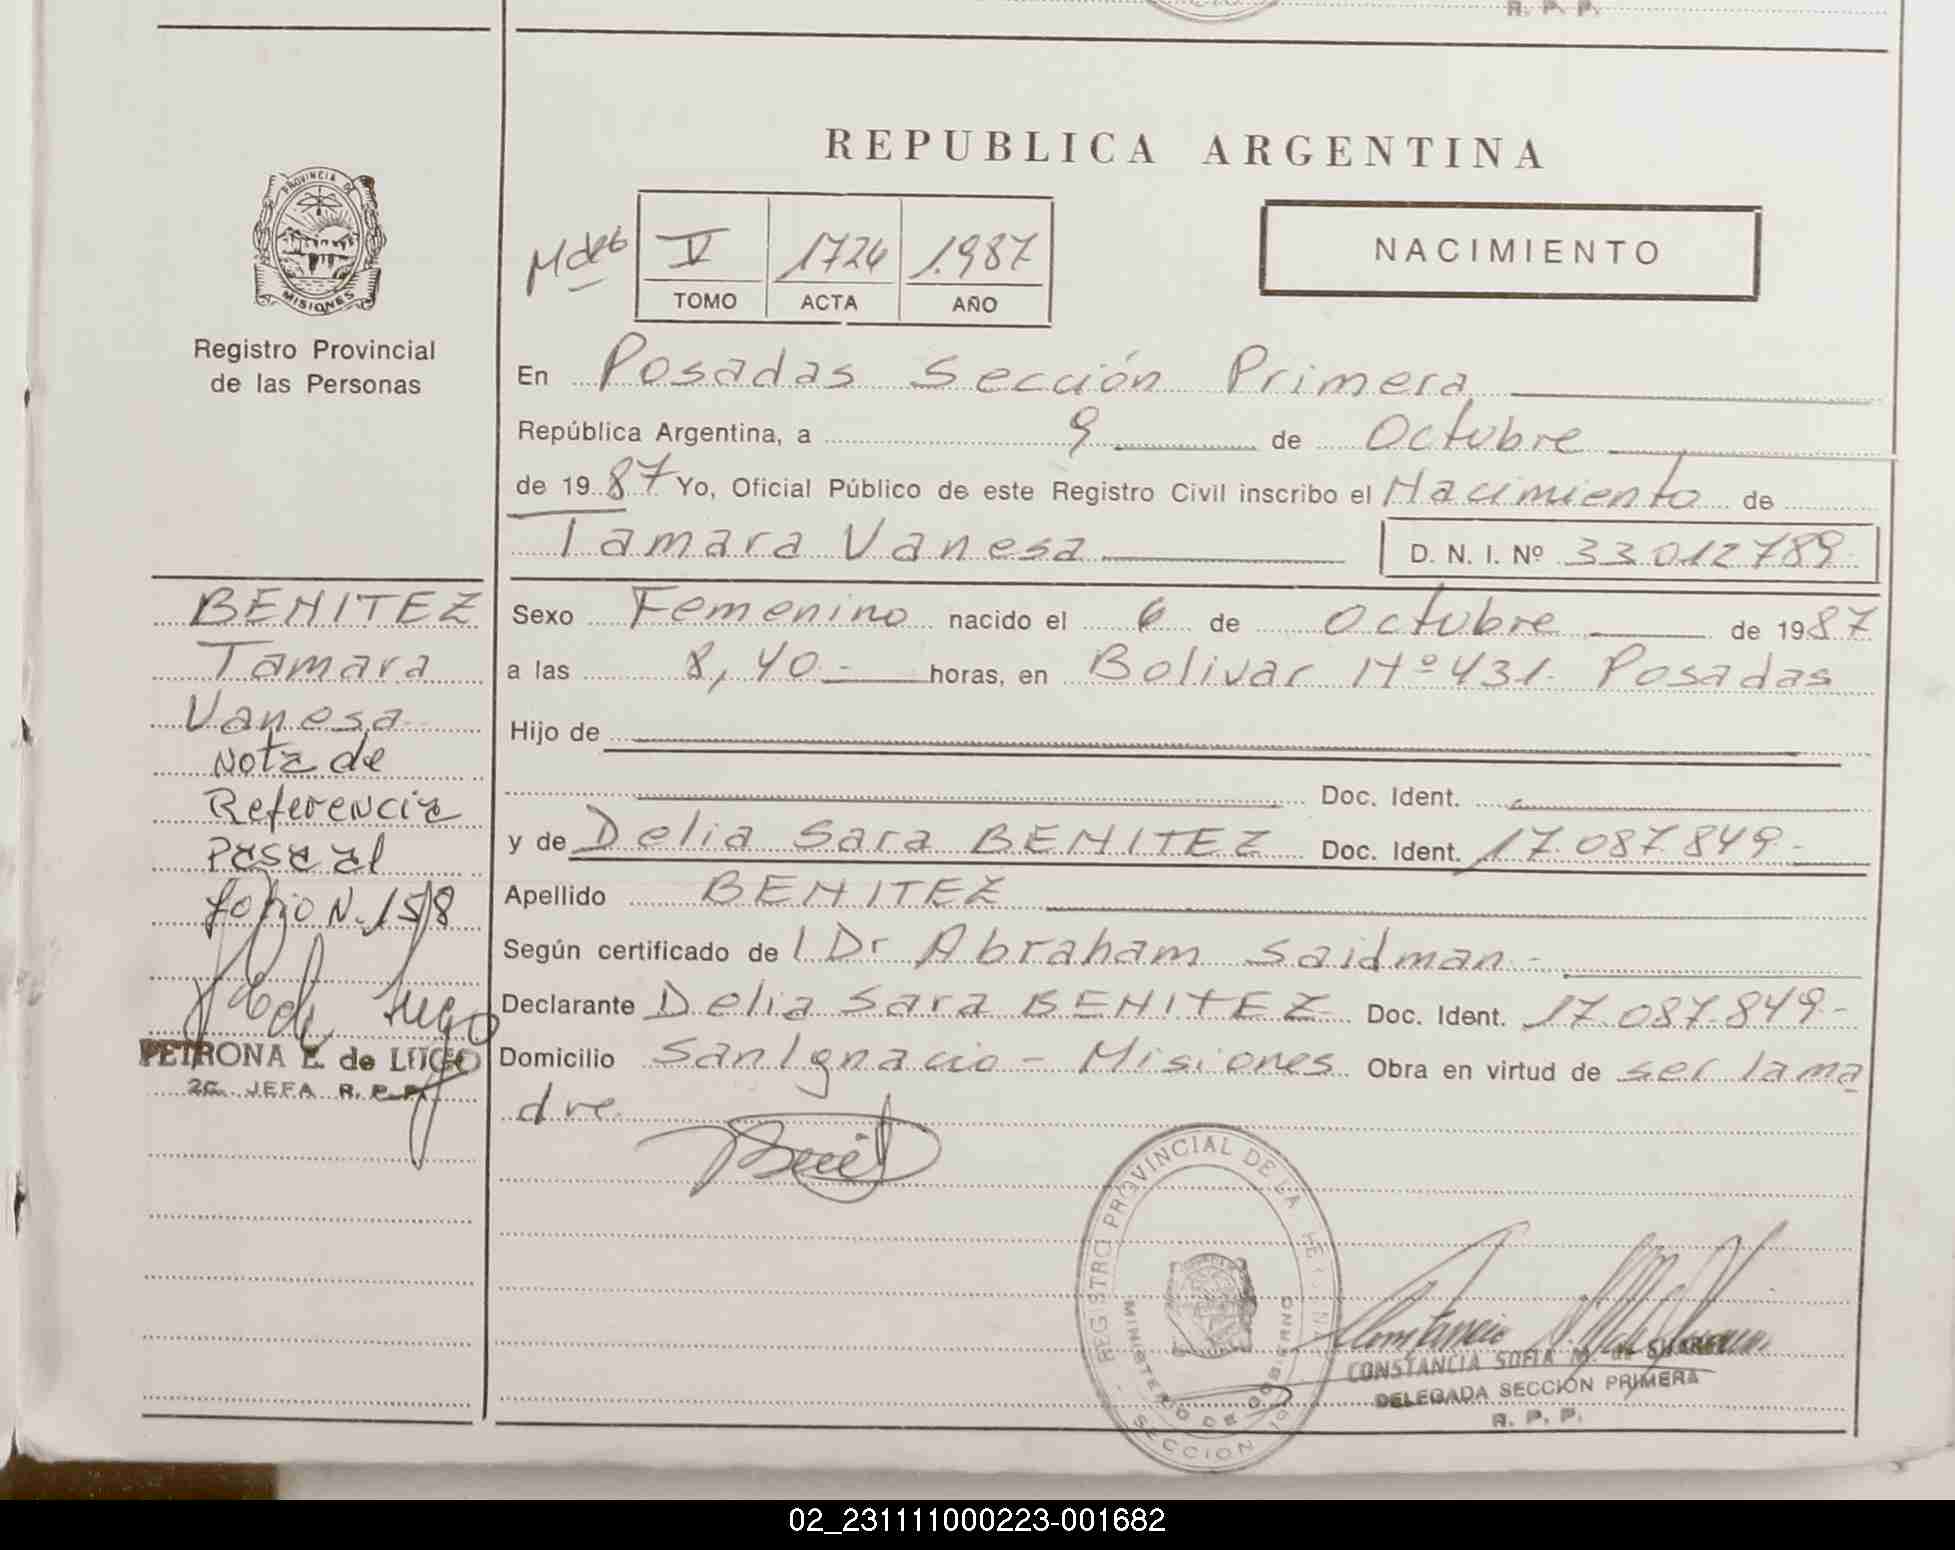 R. P. P.
REPUBLICA ARGENTINA
PROVINCIA DE
MISIONES
Registro Provincial
de las Personas
V 1724 1.987
TOMO ACTA AÑO
NACIMIENTO
En Posadas Sección Primera
República Argentina, a 9 de Octubre
de 1987 Yo, Oficial Público de este Registro Civil inscribo el Nacimiento de
Tamara Vanesa D. N. I. Nº 33 012789
Sexo Femenino nacido el 6 de Octubre de 1987
a las 8,40 horas, en Bolivar Nº 431. Posadas
Hijo de
Doc. Ident.
y de Delia Sara BENITEZ Doc. Ident. 17.087.849.-
Apellido BENITEZ
Según certificado de l Dr Abraham Saidman -
Declarante Delia Sara BENITEZ Doc. Ident. 17.087.849.-
Domicilio San Ignacio - Misiones Obra en virtud de ser la ma
dre.
BENITEZ
Tamara
Vanesa
Nota de
Referencia
Pasa al
folio N. 158
PETRONA E. de LUGO
2a. JEFA R. P. P.
REGISTRO PROVINCIAL DE LA
MINISTERIO DE GOBIERNO
SECCION 1º
CONSTANCIA SOFIA M. de
DELEGADA SECCIÓN PRIMERA
R. P. P.
02_231111000223-001682